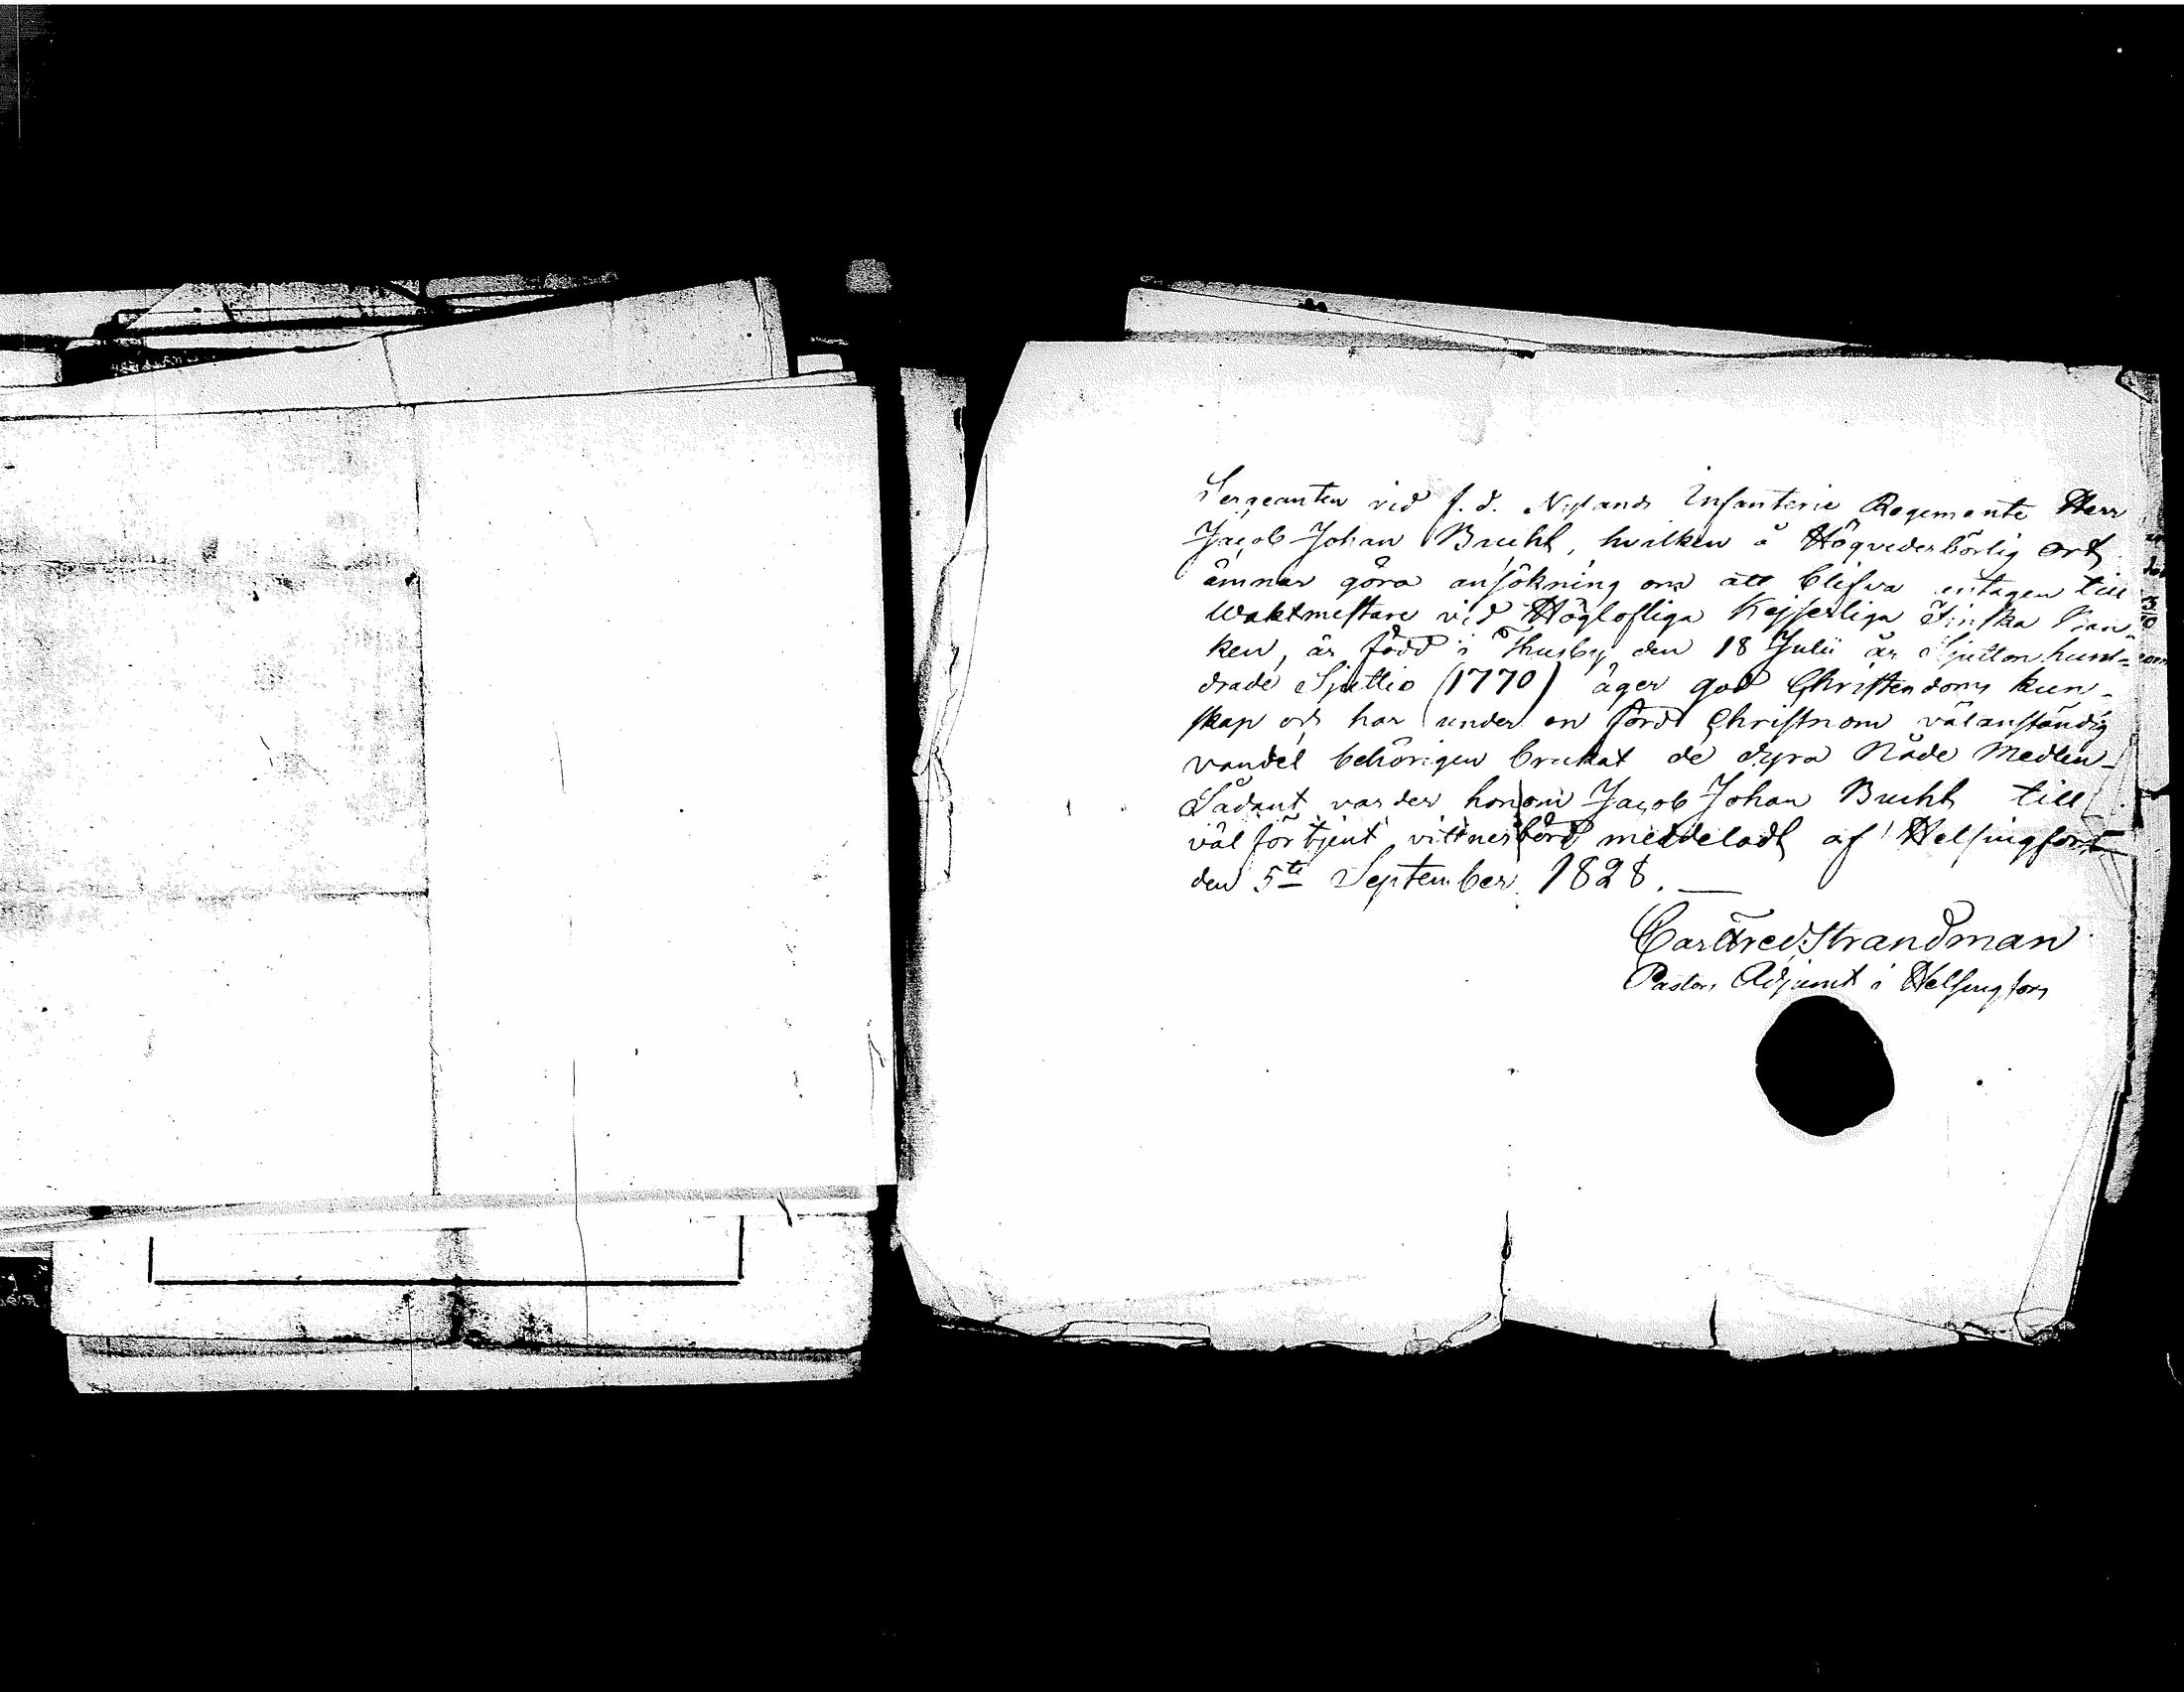 Sergeanten vid f. d. Nylands Infanterie Regemente Herr
Jacob Johan Bucht, hvilken å Högvederbörlig ort
ämnar göra ansökning om att blifva antagen till
Waktmestare vid Höglofliga Kejserliga Finska Ban-
ken, är född i Thusby den 18 Julii år Sjuttonhund-
drade Sjuttio (1770) äger god Christendoms kun-
skap och har under en förd Christnom välanständig
vandel behörigen brukat de dyra Nåde Medlen_
Sådant varder honom Jacob Johan Bucht till
väl förtjent vittnesbörd meddeladt af Helsingfors
den 5te September 1828.
Carl Fred: Strandman
Pastors Adjunct i Helsingfors